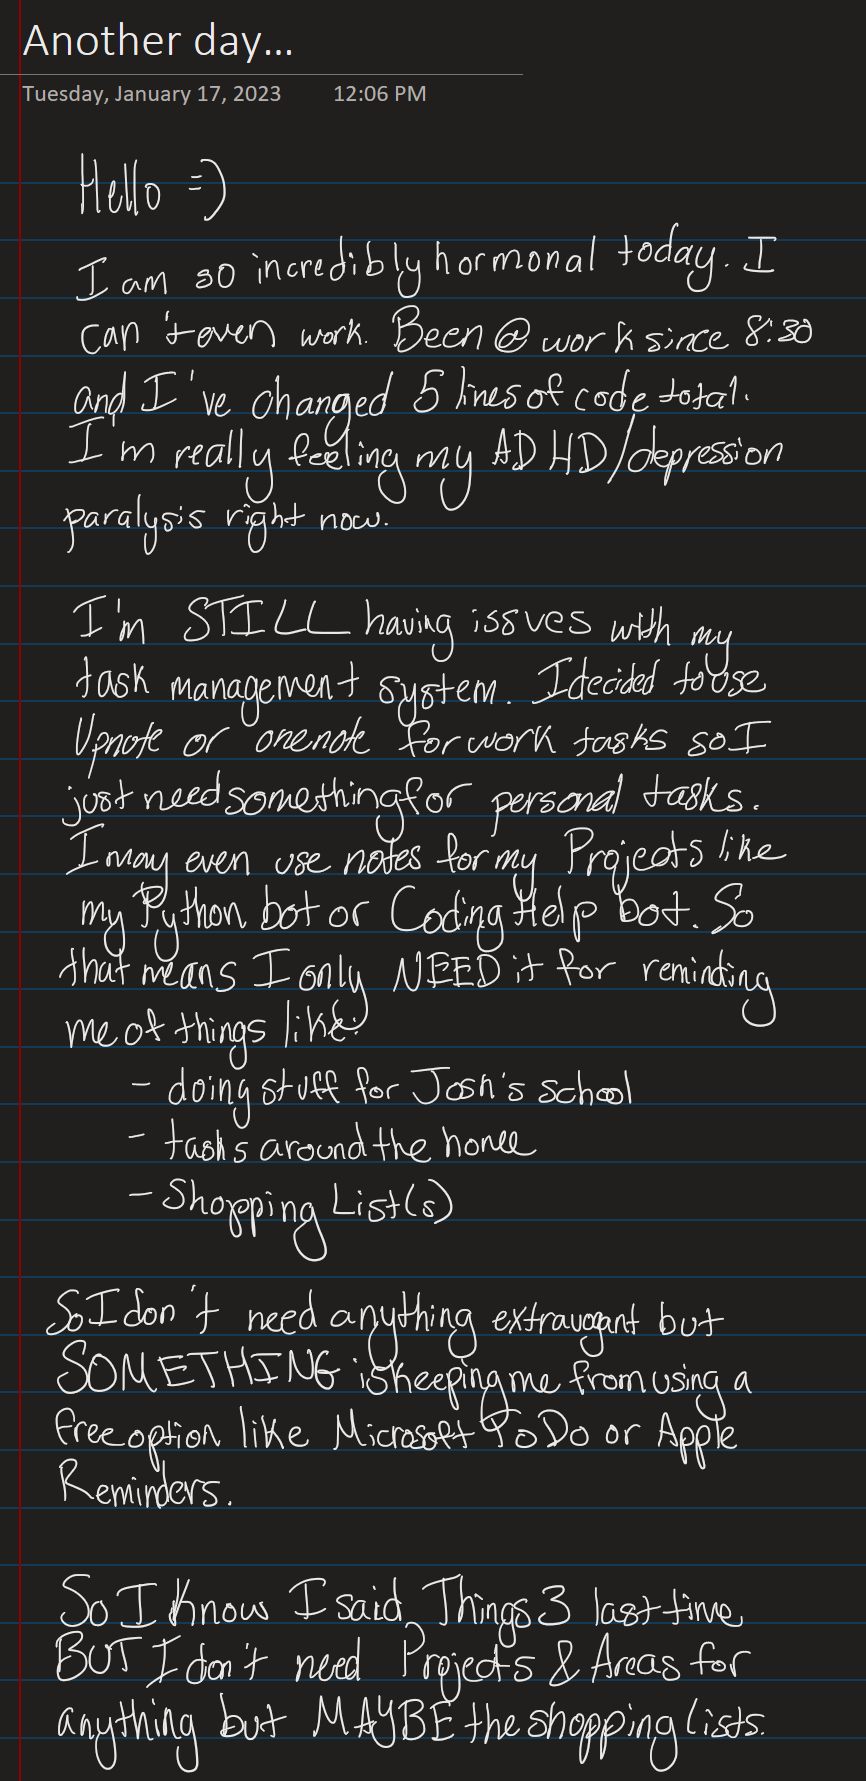 Another day...
Tuesday, January 17, 2023 12:06 PM
Hello =)
I am so incredibly hormonal today. I
can't even work. Been @ work since 8:30
and I've changed 5 lines of code total.
I'm really feeling my ADHD/depression
paralysis right now.
I'm STILL having issues with my
task management system. I decided to use
Upnote or onenote for work tasks so I
just need something for personal tasks.
I may even use notes for my Projects like
my Python bot or Coding Help bot. So
that means I only NEED it for reminding
me of things like:
- doing stuff for Josh's school
- tasks around the home
- Shopping List(s)
So I don't need anything extravagant but
SOMETHING is keeping me from using a
free option like Microsoft ToDo or Apple
Reminders.
So I know I said Things 3 last time,
BUT I don't need Projects & Areas for
anything but MAYBE the shopping lists.